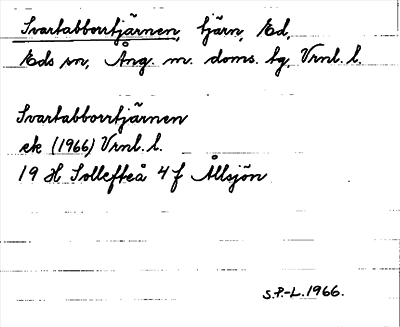 Svartabborrtjärnen, tjärn, Ed,
Eds sn, Ång. m. doms. tg, Vrnl. l.
Svartabborrtjärnen
ek (1966) Vrnl. l.
19 H Sollefteå 4 f Ållsjön
S.P.-L. 1966.